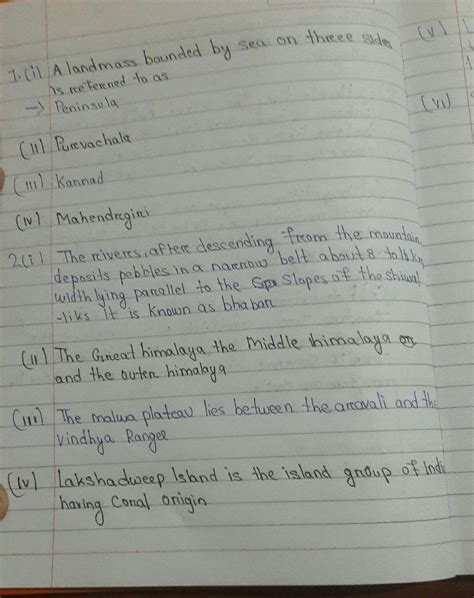 1.(i) A landmass bounded by sea on threee sides
is referred to as
→ Peninsula
(ii) Purvachala
(iii) Kannad
(iv) Mahendregiri
2(i) The rivers, after descending from the mountain
deposits pebbles in a narrow belt about 8 to 16 km
width lying parallel to the Slopes of the shiwa
-liks It is known as bhabar
(ii) The Great himalaya the middle himalaya or
and the outer himalaya
(iii) The malwa plateau lies between the aravali and the
vindhya Ranges
(iv) Lakshadweep Island is the island group of Indi
having Coral origin
(v)
(vi)